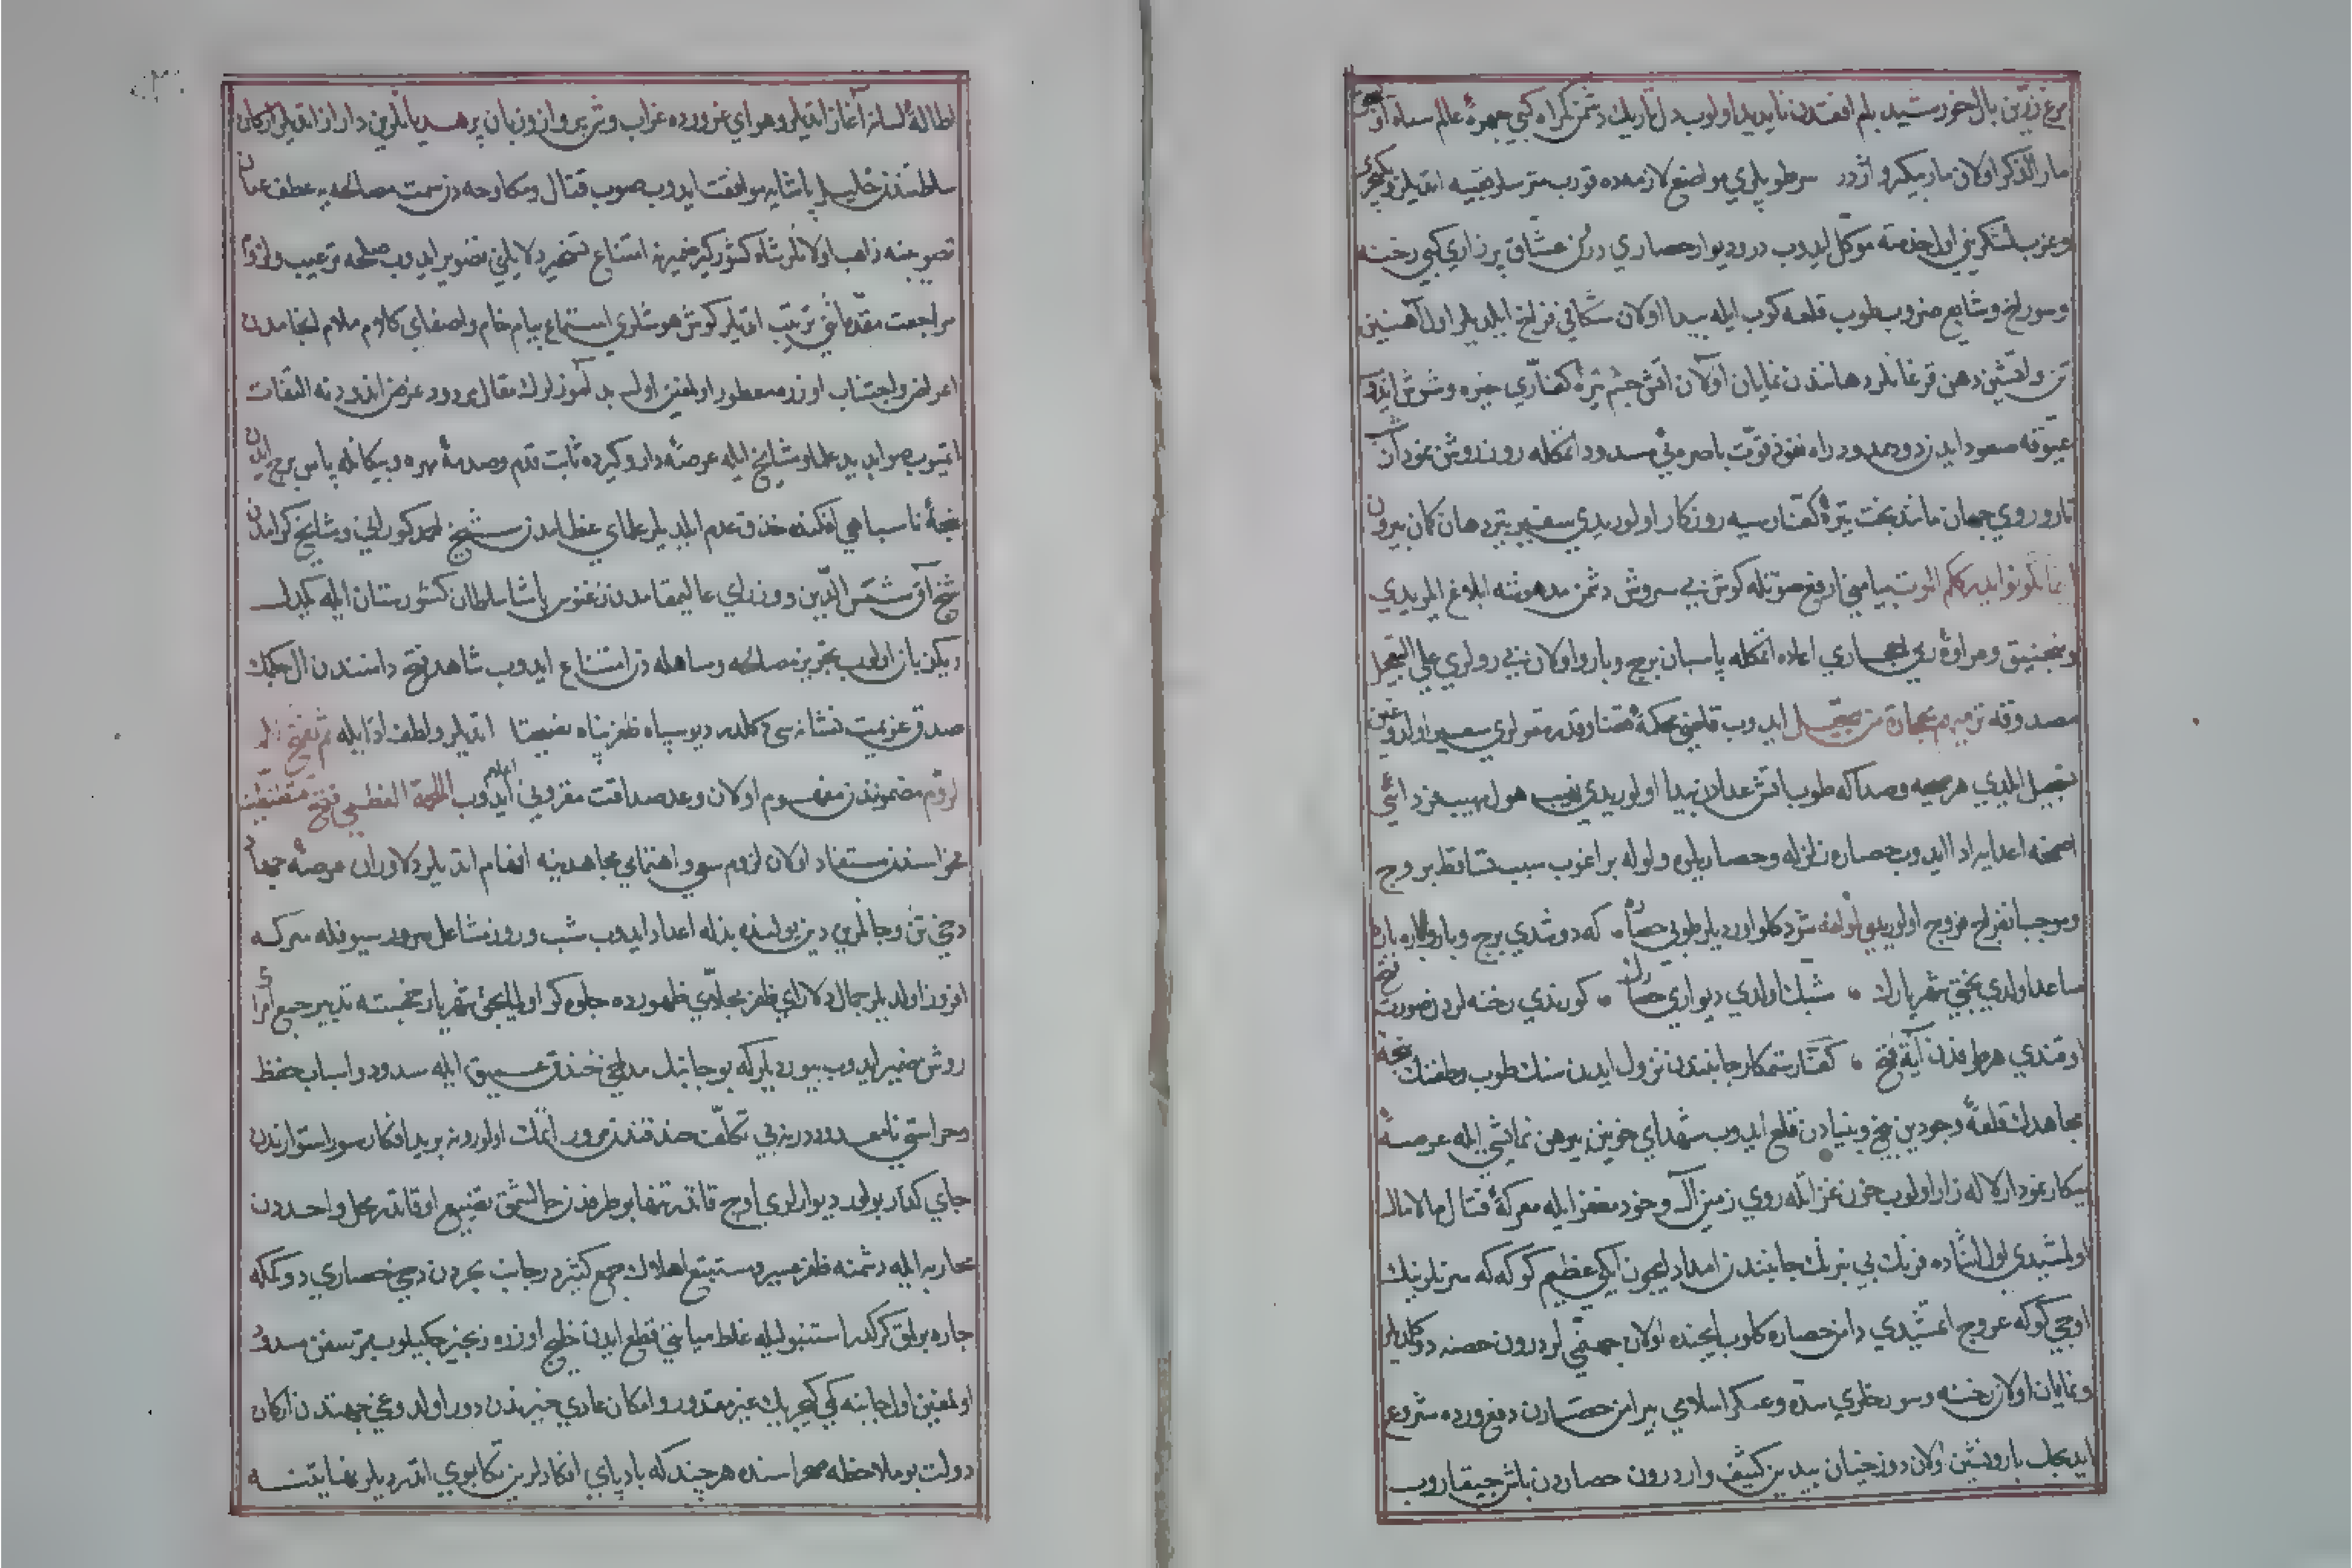 مرغ زرین بال خورشید بام افقدن ناپدید اولوب دل تاریك دشمن کمراه کبی چهرهٔ عالم سیاه
مار الذکر اولان مار پیکر و اژدر سر طوپلری مواضع لازمه ده قورب مترسلر تعبیه ایتدیلر
وعزب لشکرینی اول خدمته موکل ایدوب در و دیوار حصاری درون عشاق پر زاری کبی رخنه
و سوراخ وشایع ضروب طوب قلعه کوب ایله پیدا اولان شکافی فراخ ایلدیلر اول آهنین
تن و آتشین دهن قزغانلر دهانندن نمایان اولان آتش چشم تیرهٔ کفاری خیره و شوش ایدوب
عیوقه صعود ایدن دود ممدود راه نفوذ قوت باصره یی مسدود اتمکله روز روشن
تار و روی جهان مانند بخت تیرهٔ کفار سیه روزکار اولوریدی سفیر تیر دهان کمان بیرون
اینما تکونوا یدرککم الموت پیامنی ارفع صوتله کوش بی سروش دشمن مدهوشه ابلاغ ایلریدی
ومنجنیق و عراده رمی احجاری اعاده اتمکله پاسبان برج و بارو اولان بی رولری علی التعجیل
مصدوقه ترمیهم بحجارة من سجیل ایدوب قاضی محکمهٔ قضا و قدر مقرلری سعیر اولدوغن
تسجیل ایلدی هر صیحه وصدا که طوب آتش عدادن پیدا اولوریدی نهیب هول مهیب
اصمخه اعدایه ادا ایدوب حصاره زلزله و حصاریلره ولوله براغوب سبب تساقط بروج
وموجب انفراج فروج اولوریدی کلو اوردیلر طوبی حصاره • که دوشدی برج و بارو پاره پاره
مساعد اولدی بختی شهریارك • مشبك اولدی دیواری حصارك • کورندی رخنه لردن صورت فتح
اوقندی هر طرفدن آیة فتح • کفار ستمکار جانبندن نزول ایدن سنك طوب و تفنك
مجاهدك قلعهٔ وجودین بیخ و بنیادن قلع ایدوب شهدای خونین پیرهن نمایشی ایله عرصهٔ
پیکار نمودار لاله زار اولوب خون غزاتله روی زمین آل وخود مغفر ایله معرکهٔ قتال مالامال
اولمشیدی اول اثناده فرنك بی نیرنك جانبندن امداد ایچون ایکی عظیم کوکه که سرتیرینك
اوجی کوکه عروج اتمشیدی دامن حصاره کلوب ایچنده اولان جهنمی لر درون حصنه دوکلدیلر
ونمایان اولان رخنه و سوراخلری سده و عسکر اسلامی پیرامن حصاردن دفع و رده شروع
ایدیجك بارونشین اولان دوزخیان بیدین کثیف وار درون حصاردن باش چیقاروب
اطالهٔ لسانه آغاز ایتدیلر و هوای غرورده غراب و شر پرواز و زبان پر هذیانلرین دراز ایتدیلر ارکان
سلطنتدن خلیل پاشایه موافقت ایدوب صوب قتال و مکاوحه دن سمت مصالحه یه عطف عنان
تصویبنه ذاهب اولانلر شاه کشورکیر ضمیرینه امتناع تسخیر دلایلنی تصویر ایدوب صلحه ترغیب
مراجعت مقدماتنی ترتیب ایتدیلر کوش هوشلری استماع پیام خام و اصغای کلام ملام انجامدن
اعراض و اجتناب اوزره مفطور اولمغین اول بد آموزلرك مقال مردود غرض اندودنه التفات
اتمیوب صوابدید علما و مشایخ ایله عرصهٔ دار و کیرده ثابت قدم وصدمهٔ بهره و پیکانله پاس برج ایدن
نجهٔ ناسپاهی افکنده خندق عدم ایلدیلر علمای عظامدن شیخ احمد کورانی و مشایخ کرامدن
شیخ آق شمس الدین و وزرای عالیمقامدن زغنوس پاشا سلطان کشورستان ایله یکدل
و یکزبان اولوب تجویز مصالحه و مساهله دن امتناع ایدوب شاهد فتح دامنندن ال چکمك
صدق عزیمت نشانه سی کلدر دیو سپاه ظفرپناه نصیحتا ایتدیلر و لطف ادا ایله ثم تفتح الروم
لروم مضموندن مفهوم اولان وعد صداقت مقرونی اعلام ایدوب الملحمة العظمی فتح قسطنطنیه
فحواسندن مستفاد اولان لزوم سعی و اهتمامی مجاهدینه افهام ایتدیلر دلاوران عرصهٔ جهاد
دخی تن و جانلرین دین یولنده بذله اعداد ایدوب شب و روز مشاعل سیوفله معرکه
افروز اولدیلر جمال دلارای ظفر مجلای ظهورده جلوه کر اولمایجق شهریار خجسته تدبیر جمع امرا
روشن ضمیر ایدوب بیوردیلر که بو جانبك مداخلی خندق عمیق ایله مسدود و اسباب حفظ
وحراستی نامعدوددر بی تکلف خندقندن مرور اتمك اولور و نه برید افکار سور استوارندن
جای کذار بولور دیوارلری اوج قاتدر تنها بو طرفدن چالشمق تضییع اوقاتدر محل واحددن
محاربه ایله دشمنه ظفر عسیر و مستتبع اهلاك جمع کثیردر جانب بحردن دخی حصاری دوکمکه
چاره بولمق کرکدر استنبول ایله غلطه میاننی قطع ایدن خلیج اوزره زنجیر چکیلوب ممر سفن مسدود
اولمغین اول جانبه کمی کچرمك غیر مقدور و امکان عادی حیزندن دور اولدوغی جهتدن ارکان
دولت بو ملاحظه صحراسنده هرچند که بادپای افکارلرین تکاپوی ایتدردیلر نهایتنه